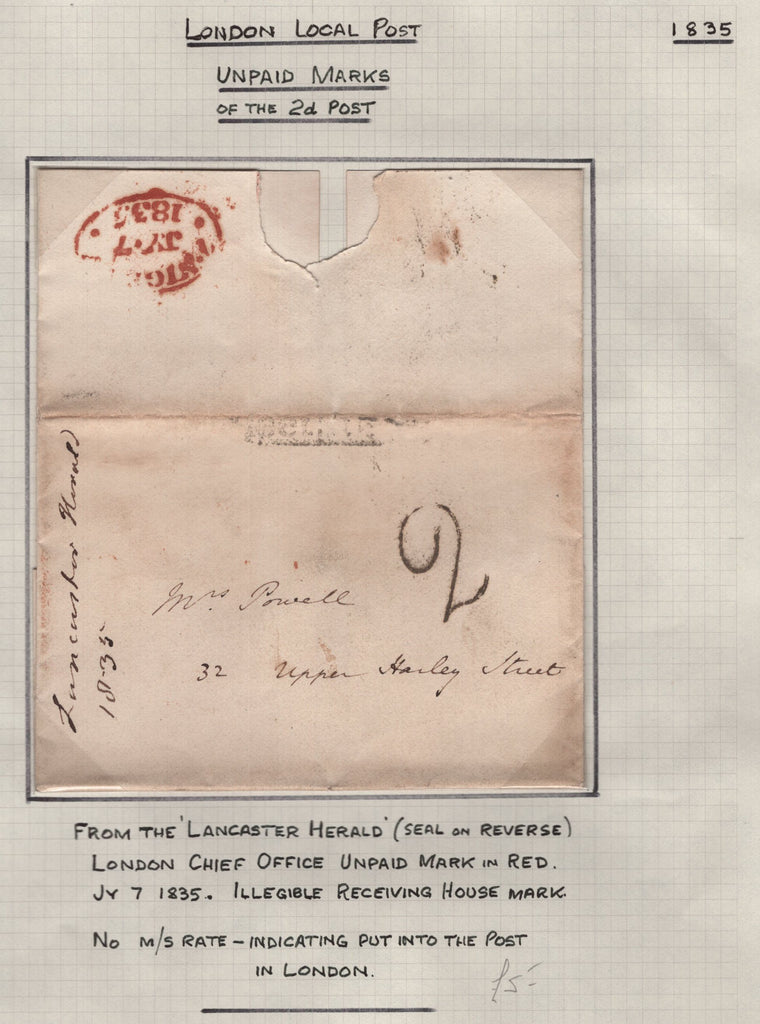 LONDON LOCAL POST
1835
UNPAID MARKS
OF THE 2d POST
1835
JY 7
Lancaster Herald
1835
2
Mrs Powell
32 Upper Harley Street
FROM THE 'LANCASTER HERALD' (SEAL ON REVERSE)
LONDON CHIEF OFFICE UNPAID MARK IN RED.
JY 7 1835. ILLEGIBLE RECEIVING HOUSE MARK.
NO M/S RATE – INDICATING PUT INTO THE POST
IN LONDON.
£5-